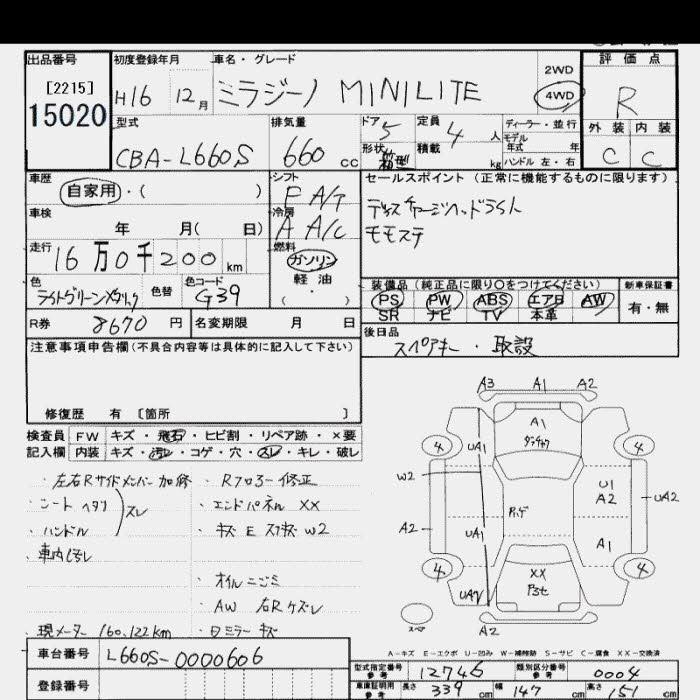 出品番号 初度登録年月 車名・グレード 評価点
[2215]
15020
H16 12月 ミラジーノ MINILITE 2WD 4WD R
型式 排気量 ドア 定員 ディーラー・並行
CBA-L660S 660cc 5 4人 モデル年式 年 外装 内装
形状 箱型 積載 kg ハンドル 左・右 C C
車歴 シフト セールスポイント (正常に機能するものに限ります)
自家用・( ) F A/T ディスチャージヘッドライト
車検 冷房 モモステ
年 月( 日) A A/C
走行 燃料
16万0千200km ガソリン
色 色替 色コード 軽油 装備品(純正品に限り○をつけてください) 新車保証書
ライトグリーンメタリック G39 ( ・ ) PS PW ABS エアB AW 有・無
SR ナビ TV 本革
R券 8670円 名変期限 月 日 後日品
スペアキー・取説
注意事項申告欄(不具合内容等は具体的に記入して下さい)
修復歴 有 [箇所 ]
検査員 FW キズ・飛石・ヒビ割・リペア跡・×要
記入欄 内装 キズ・汚レ・コゲ・穴・スレ・キレ・破レ
・左右Rサイドメンバー加修 ・Rフロアー修正
・シートヘタリ スレ ・エンドパネルXX
・ハンドル ・キズ E スリキズ W2
・車内汚レ
・オイルニゴミ
・AW 右Rケズレ
・現メーター160,122km ・ロミラーキズ
A3 A1 A2
A1
4 UA1 4
W2 U1
A2 UA2
A2 UA1 A1
4 XX 4
UA1
スペア A2
A-キズ E-エクボ U-凹み W-補修跡 S-サビ C-腐食 XX-交換済
車台番号 L660S-0000606
型式指定番号 12746 類別区分番号 0004
登録番号 車庫証明用参考 長さ 339cm 幅 147cm 高さ 151cm